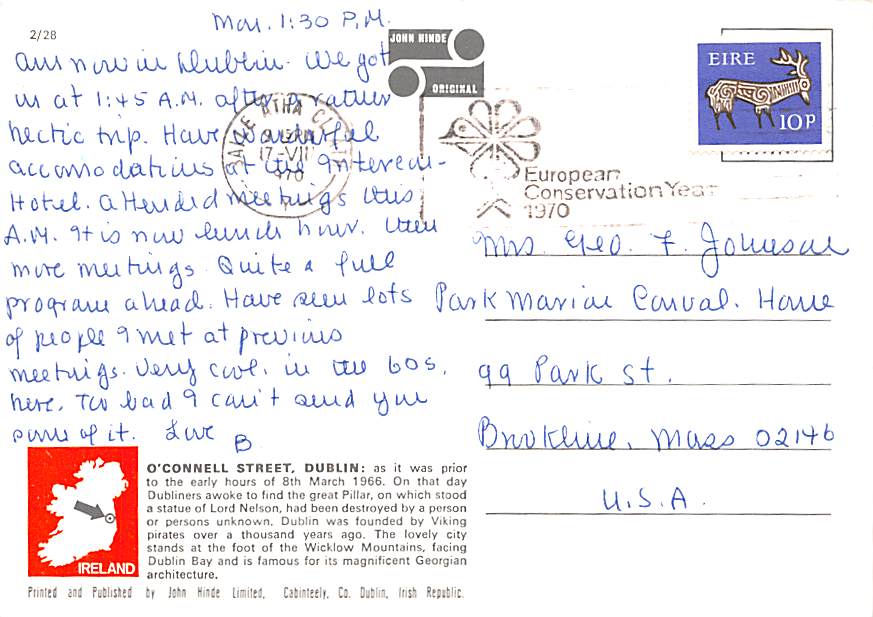 2/28
Mon. 1:30 P.M.
Am now in Dublin. We got
in at 1:45 A.M. after a rather
hectic trip. Have wonderful
accomodations at the Intercon-
Hotel. Attended meetings this
A.M. It is now lunch hour. Then
more meetings. Quite a full
program ahead. Have seen lots
of people I met at previous
meetings. Very cool, in the 60s,
here. Too bad I can't send you
some of it. Love
B
JOHN HINDE
ORIGINAL
BAILE ATHA CLIATH
17-VII
1970
European
Conservation Year
1970
EIRE
10p
Mrs. Geo. F. Johnson
Park Marion Conval. Home
99 Park St.
Brookline, Mass 02146
U.S.A.
IRELAND
O'CONNELL STREET, DUBLIN: as it was prior
to the early hours of 8th March 1966. On that day
Dubliners awoke to find the great Pillar, on which stood
a statue of Lord Nelson, had been destroyed by a person
or persons unknown. Dublin was founded by Viking
pirates over a thousand years ago. The lovely city
stands at the foot of the Wicklow Mountains, facing
Dublin Bay and is famous for its magnificent Georgian
architecture.
Printed and Published by John Hinde Limited, Cabinteely, Co. Dublin, Irish Republic.